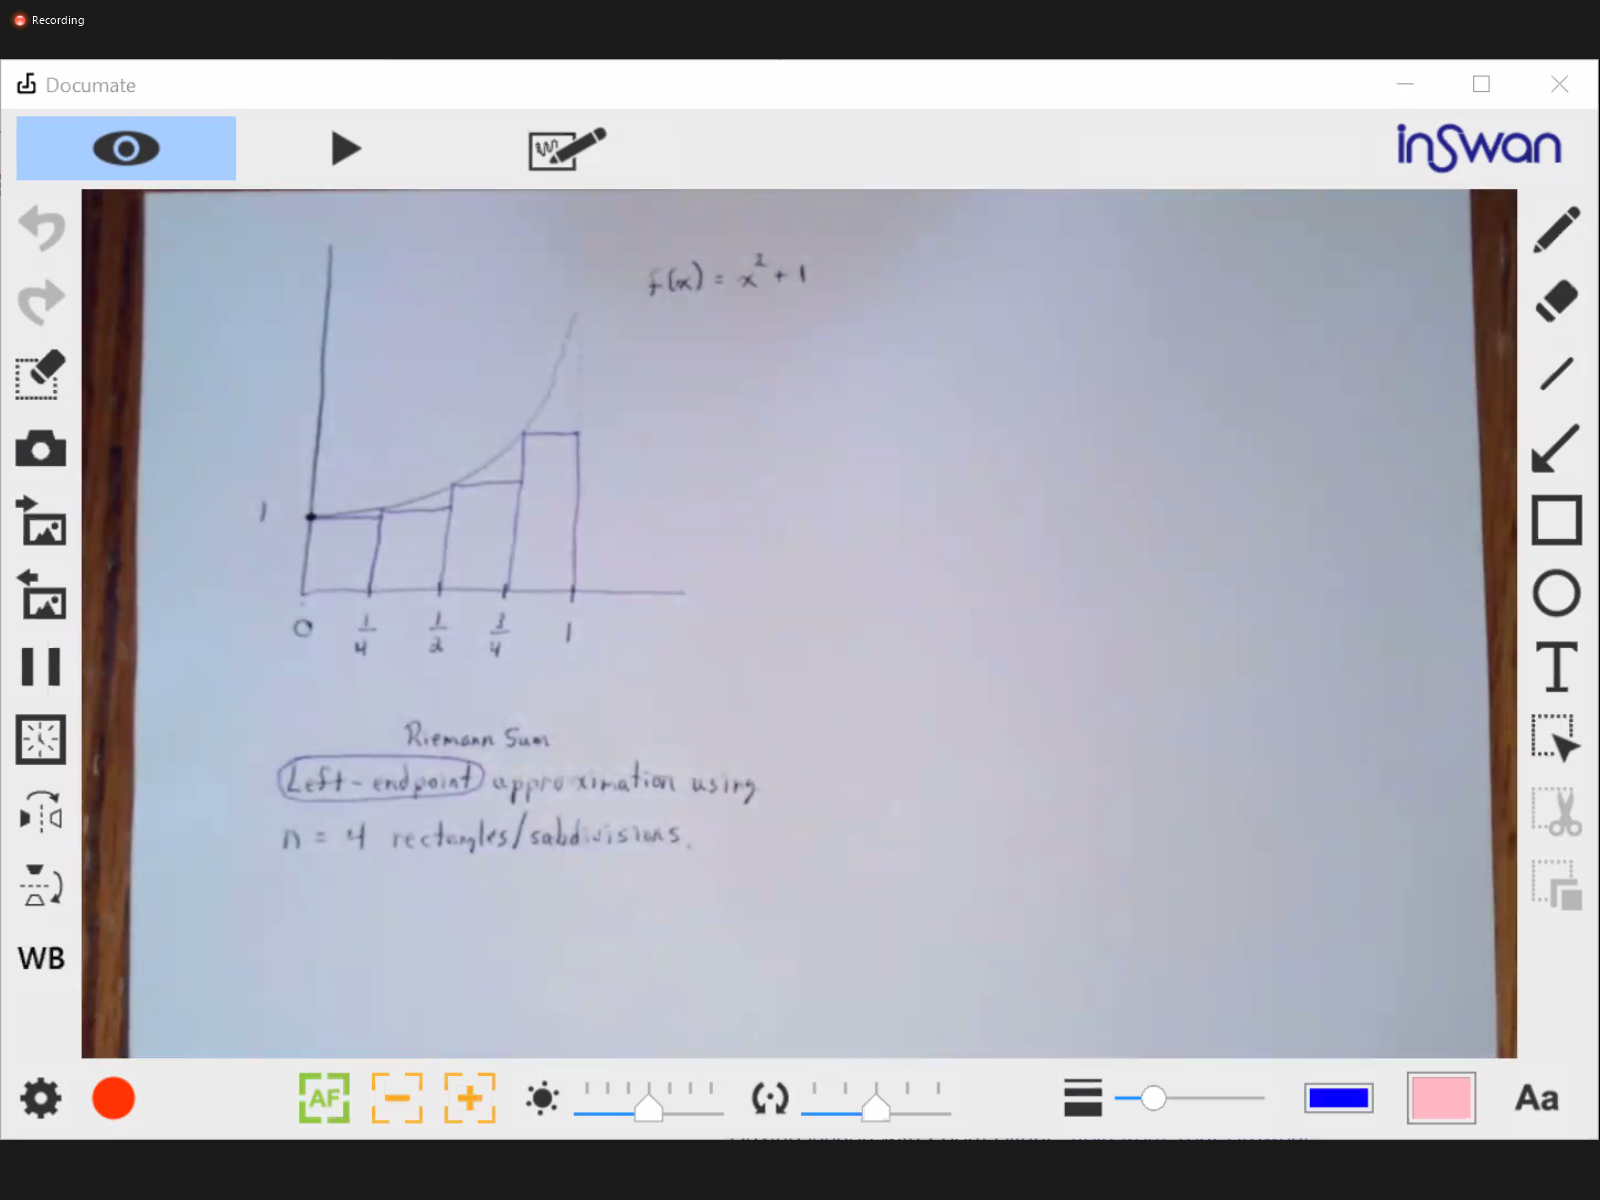 Recording
Documate
inSwan
f(x) = x² + 1
1
0 1/4 1/2 3/4 1
Riemann Sum
Left-endpoint approximation using
n = 4 rectangles/subdivisions.
WB
AF
T
Aa